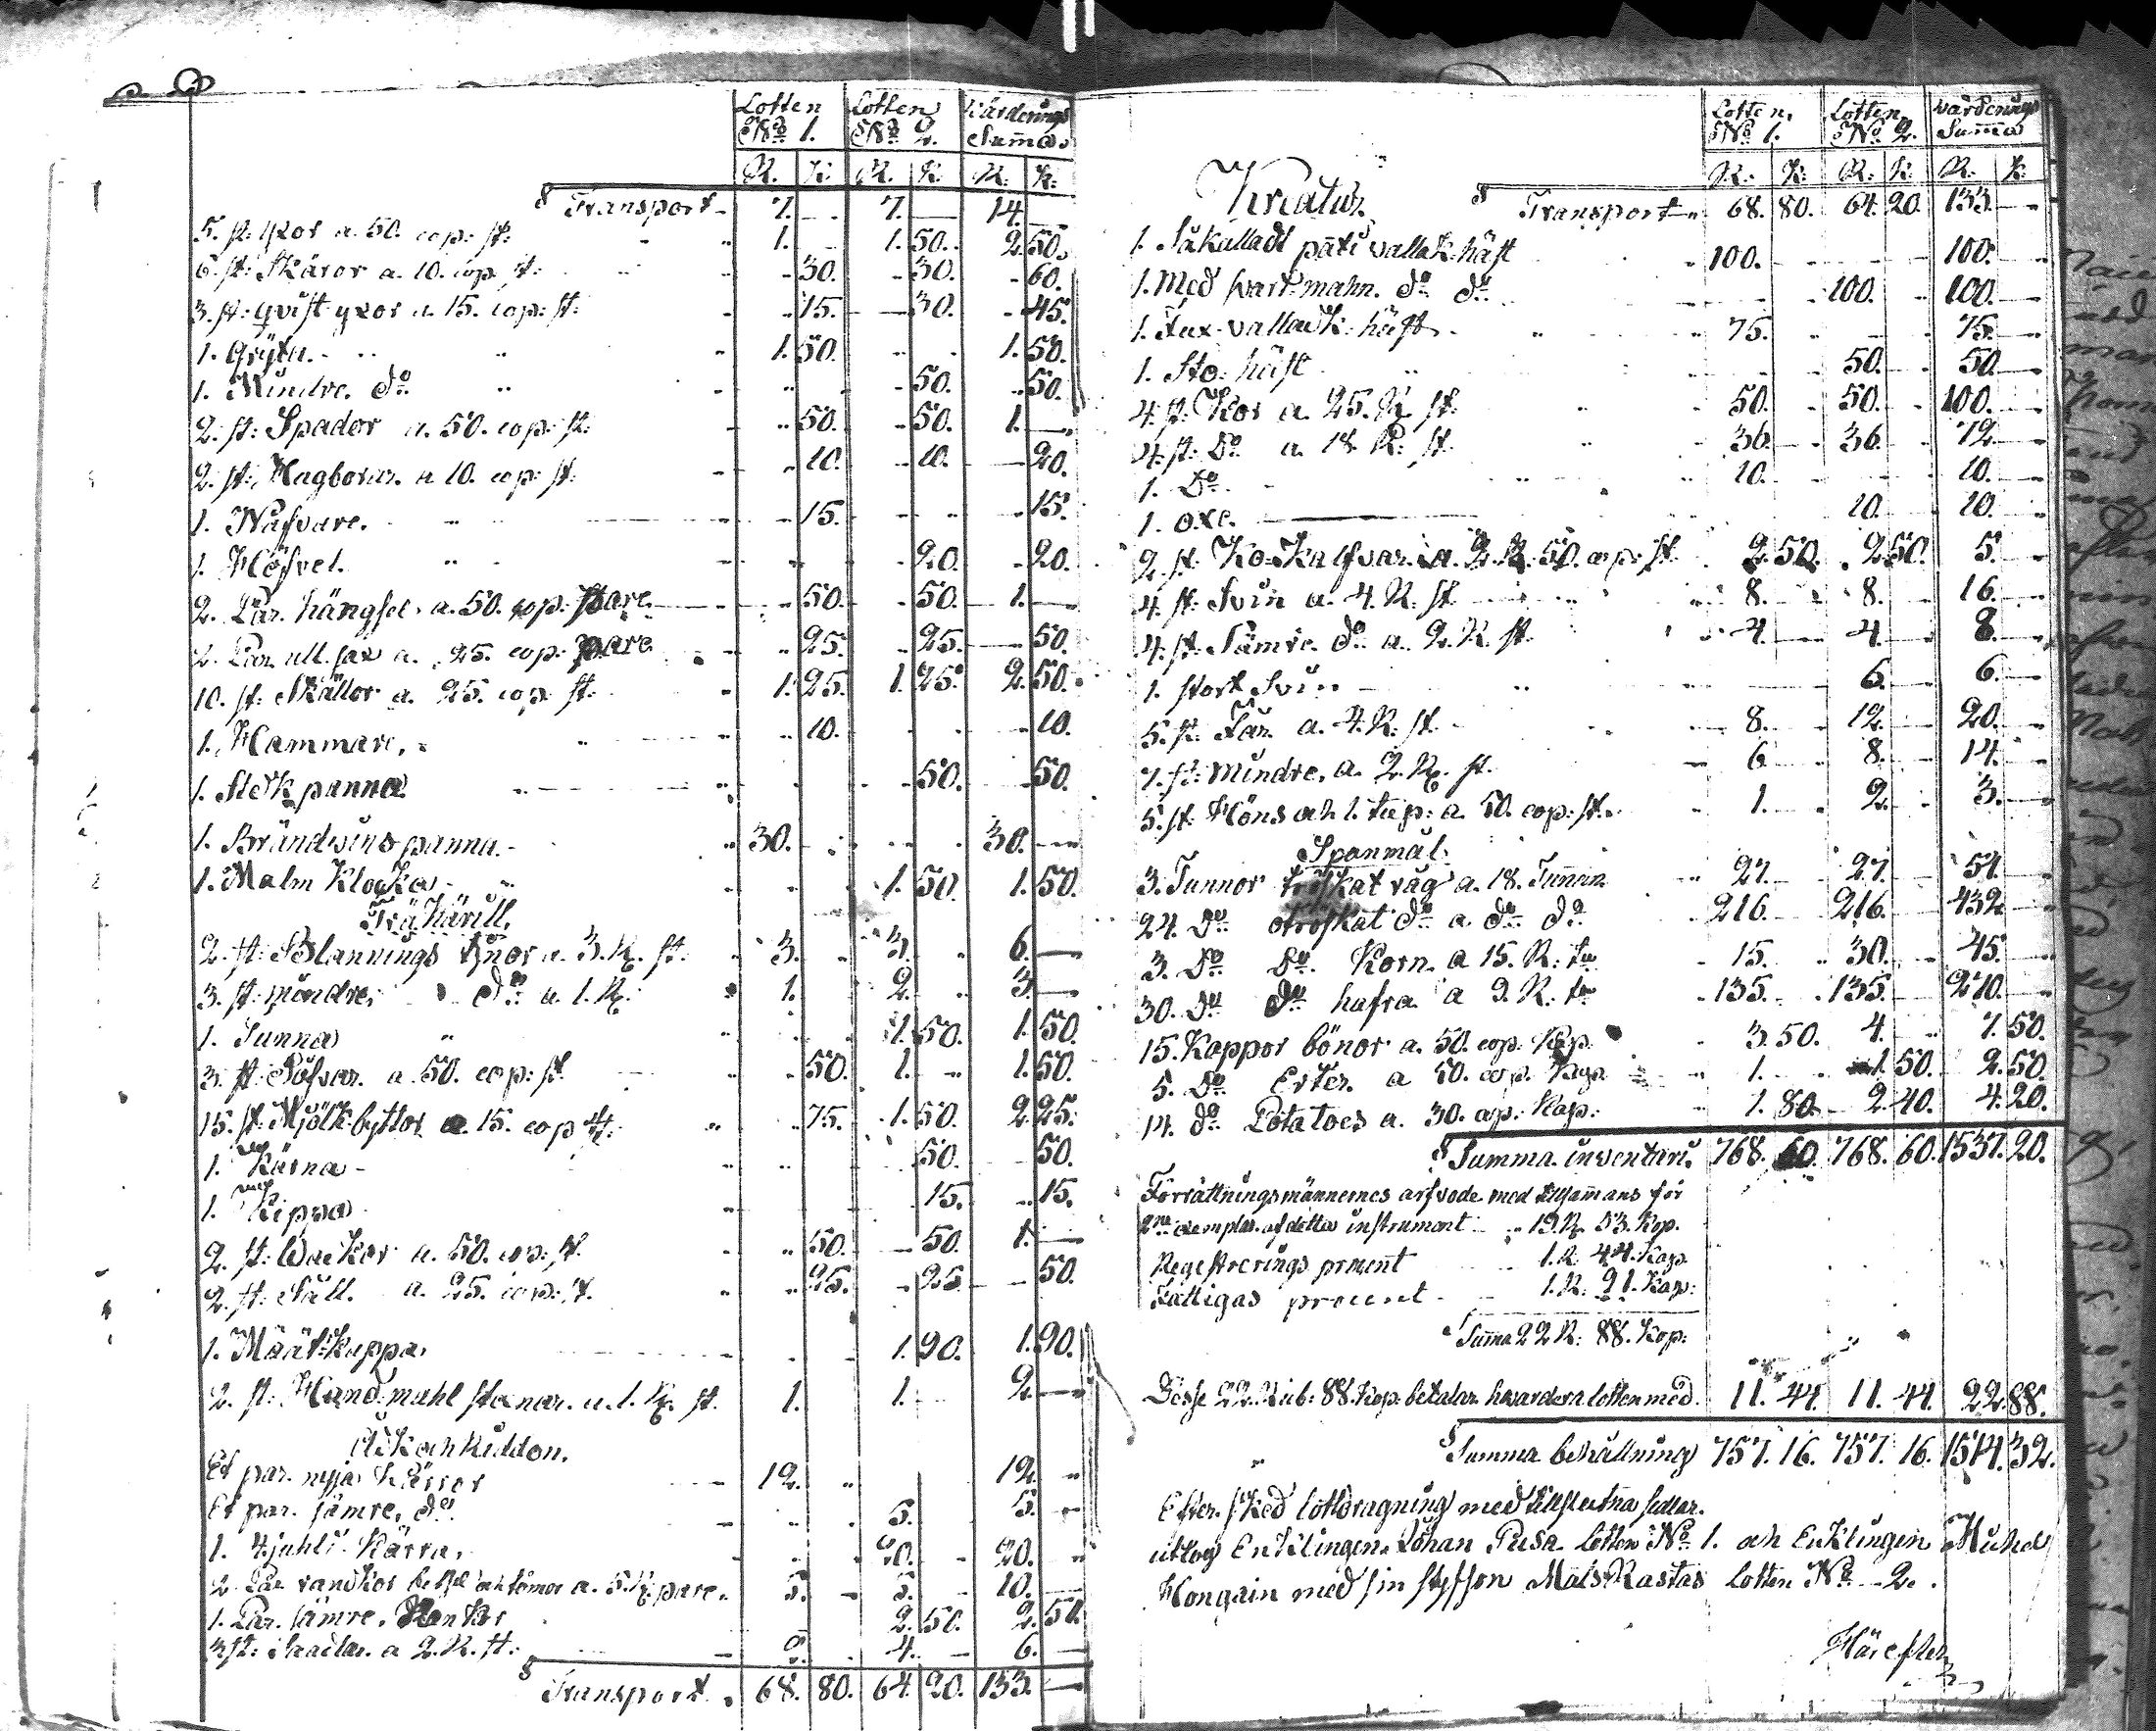 Lotten Lotten Värderings
No 1. No 2. Summa.
R. K. R. K. R. K.
Transport 7. 7. 14.
5. st: yxor a. 50. cop: st: 1. 1. 50. 2. 50.
6. st: Skäror a. 10. cop. st: 30. 30. 60.
3. st: qvist yxor a. 15. cop: st: 15. 30. 45.
1. Gryta. 1. 50. 1. 50.
1. Mindre. do 50. 50.
2. st: Spador a. 50. cop: st: 50. 50. 1.
2. st: Hagborar. a 10. cop: st: 10. 10. 20.
1. Nafvare. 15. 15.
1. Höfvel. 20. 20.
2. Par. hängsel. a. 50. cop: pare 50. 50. 1.
2. Par ull. sax a. 25. cop: pare 25. 25. 50.
10. st: Skällor a. 25. cop st: 1. 25. 1. 25. 2. 50.
1. Hammare. 10. 10.
1. Stekpanna 50. 50.
1. Brändvins panna. 30. 30.
1. Malm Klocka 1. 50. 1. 50.
Trä Käril.
2. st: Blannings tynor a. 3. R. st. 3. 3. 6.
3. st: mindre, do a 1. R. 1. 2. 3.
1. Tunna 1. 50. 1. 50.
3. st: Såfvar. a. 50. cop: st 50. 1. 1. 50.
15. st: Mjölk byttor a. 15. cop st: 75. 1. 50. 2. 25.
1. Kärna 50. 50.
1. Kippa 15. 15.
2. st: Wackor a. 50. cop: st 50. 50. 1.
2. st: Såll. a. 25. cop: st. 25. 25. 50.
1. Määt-kappa. 1. 90. 1. 90.
2. st: Hand mahl stenar. a. 1. R. st. 1. 1. 2.
Åk och Riddon.
Et par. nyja Kärror 12. 12.
Et par. sämre, do 5. 5.
1. 4 juhli Kärra. 20. 20.
2. Par rankor betsel och tömar a. 5. R. pare. 5. 5. 10.
1. Par. sämre. Rankor 2. 50. 2. 50.
3 st: Sadlar. a 2. R. st: 2. 4. 6.
Transport. 68. 80. 64. 20. 133.
Lotten. Lotten Värderings
No 1. No 2. Summa
R. K. R. K. R. K.
Kreatur. Transport 68. 80. 64. 20. 133.
1. Så kalladt päti vallak häst 100. 100.
1. Med svart mahn. do do 100. 100.
1. Fux-vallack häst 75. 75.
1. Sto: häst 50. 50
4. st: Kor a. 25. R st. 50. 50. 100.
4. st: Do a. 18. R: st. 36. 36. 72
1. Do 10. 10.
1. oxe. 10. 10.
2. st: Ko-Kalfvar. a. 2. R. 50. cop: st 2. 50. 2. 50. 5.
4. st: Svin a. 4. R: st 8. 8. 16.
4. st: Sämre. do a. 2. R. st. 4. 4. 8.
1. stort Svin 6. 6.
5. st: Får. a. 4. R: st. 8. 12. 20.
7. st: mindre, a. 2. R. st. 6 8. 14.
5. st: Höns och 1. tup: a. 50. cop: st. 1. 2. 3.
Spanmål.
3. Tunnor tröskat råg a. 18. Tunnan 27. 27. 54.
24. Do otröskat do a do do 216. 216. 432
3. Do Do Korn. a 15. R: tu 15. 30. 45.
30. Do do hafra a 9. R. tu 135. 135. 270.
15. Kappor bönor a. 50. cop. Kap. 3. 50. 4. 7. 50.
5. Do Erter. a 50. cop. Kap 1. 1. 50. 2. 50.
14. do Potatoes a. 30. cop. Kap. 1. 80. 2. 40. 4. 20.
Summa inventarii 768. 60. 768. 60. 1537. 20.
Förrättningsmännernes arfvode med tillsammans för
2ne exemplar. af detta instrument 19 R. 53. Kop.
Regestrerings procent 1. R. 44. Kop.
Fattigas procent 1. R. 91. Kop:
Summa 22 R: 88. Kop:
Desse 22. Rub: 88. Kop: betalar. hvardera lotten med. 11. 44. 11. 44. 22. 88.
Summa behållning 757. 16. 757. 16. 1514. 32.
Efter. sked lottdragning med tillslutna sedlar.
uttog Enklingen. Johan Pusa lotten No 1. och Enklingen Michel
Hongain med sin styfson Mats Rastas lotten No 2.
Härefter